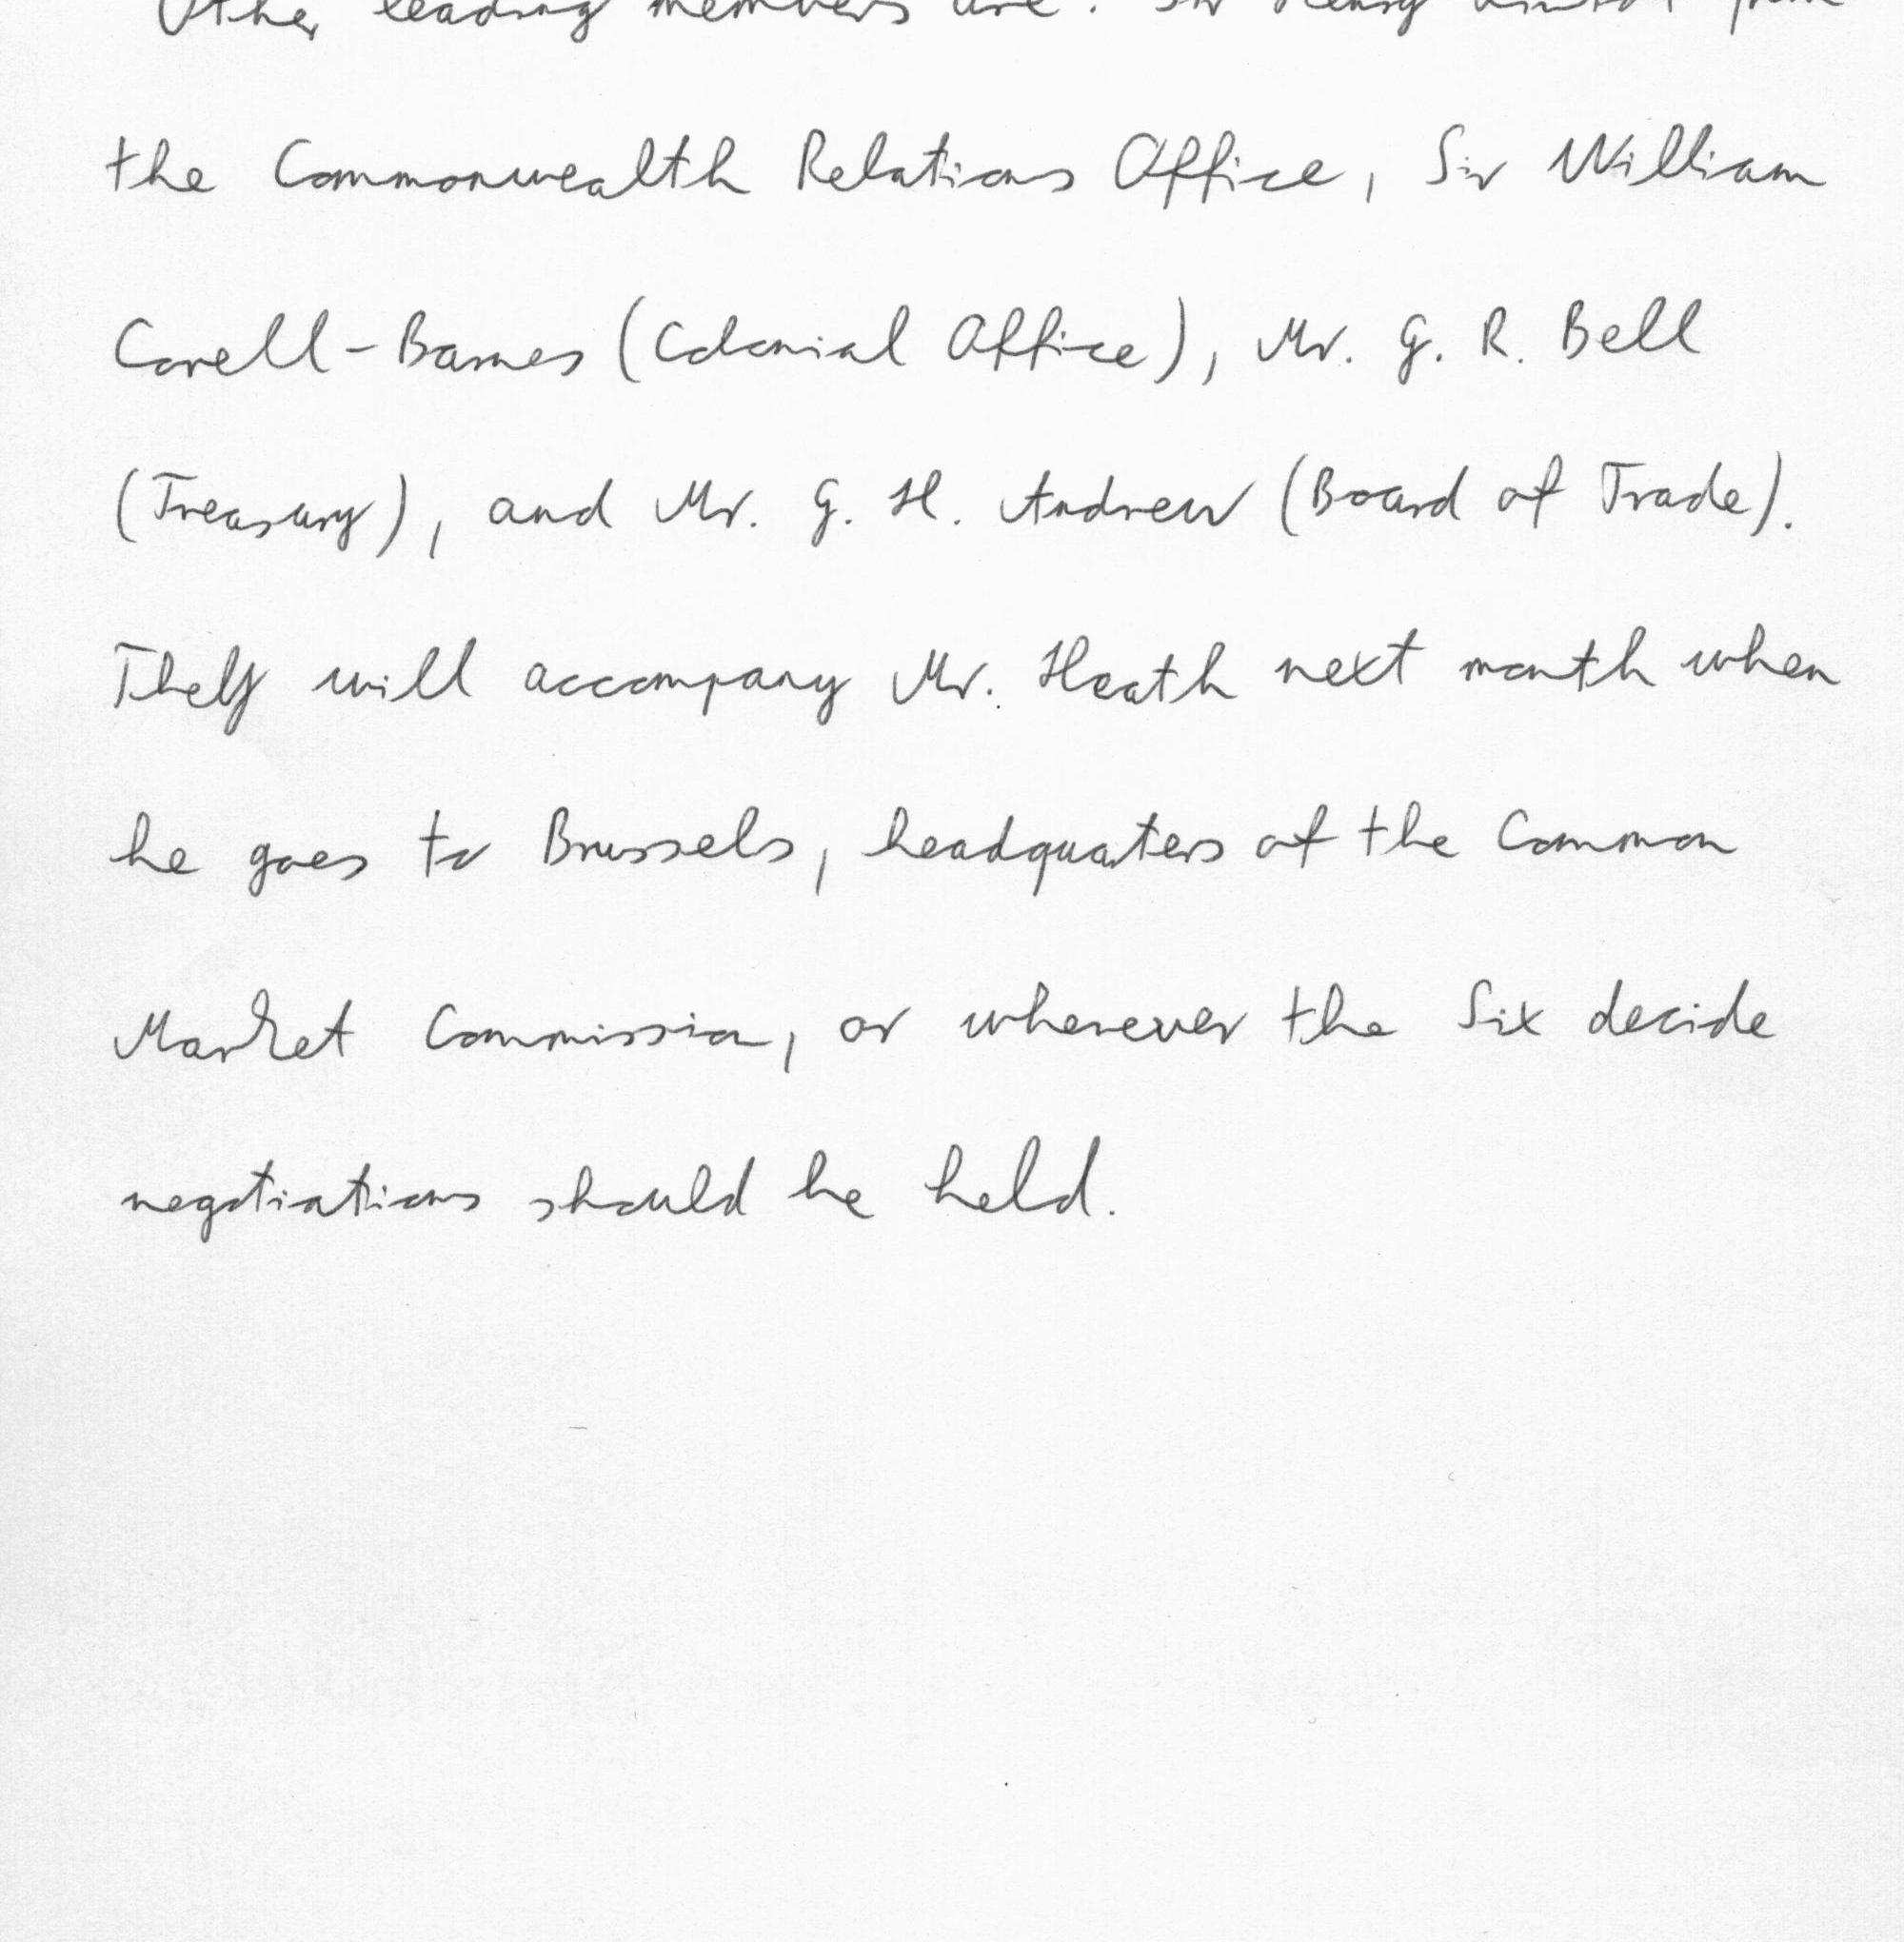 Other leading members are: Sir Henry from
the Commonwealth Relations Office, Sir William
Corell-Barnes (Colonial Office), Mr. G. R. Bell
(Treasury), and Mr. G. H. Andrew (Board of Trade).
They will accompany Mr. Heath next month when
he goes to Brussels, headquaters of the Common
Market Commission, or wherever the Six decide
negotiations should be held.